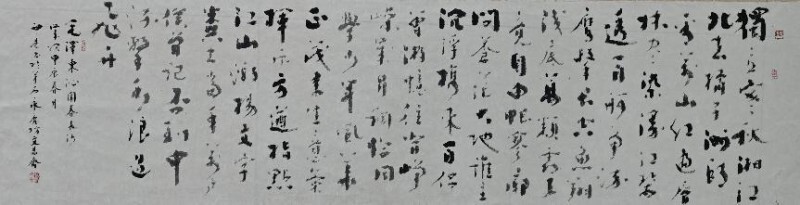 獨立寒秋湘江
北去橘子洲頭
看萬山紅遍層
林盡染漫江碧
透百舸爭流
鷹擊長空魚翔
淺底萬類霜天
競自由悵寥廓
問蒼茫大地誰主
沉浮攜來百侶
曾遊憶往昔崢
嶸歲月稠恰同
學少年風華
正茂書生意氣
揮斥方遒指點
江山激揚文字
糞土當年萬戶
侯曾記否到中
流擊水浪遏
飛舟
毛澤東沁園春長沙
春月